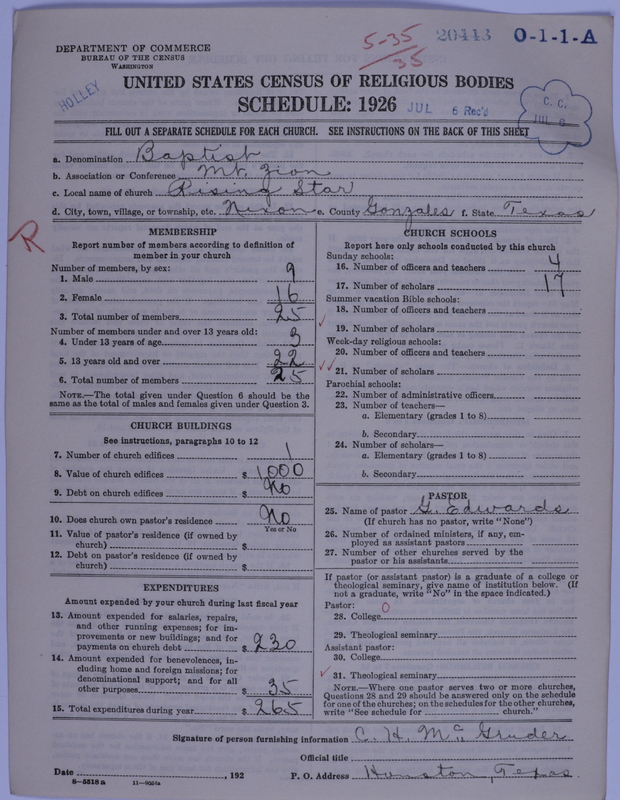 5-35
35
20443 O-1-1-A
DEPARTMENT OF COMMERCE
BUREAU OF THE CENSUS
WASHINGTON
HOLLEY
UNITED STATES CENSUS OF RELIGIOUS BODIES
SCHEDULE: 1926
JUL 6 Rec'd
C. C.
JUL 6
FILL OUT A SEPARATE SCHEDULE FOR EACH CHURCH. SEE INSTRUCTIONS ON THE BACK OF THIS SHEET
a. Denomination Baptist
b. Association or Conference Mt. Zion
c. Local name of church Rising Star
d. City, town, village, or township, etc. Nixon e. County Gonzales f. State Texas
R
MEMBERSHIP
Report number of members according to definition of
member in your church
Number of members, by sex:
1. Male 9
2. Female 16
3. Total number of members 25
Number of members under and over 13 years old:
4. Under 13 years of age 3
5. 13 years old and over 22
6. Total number of members 25
NOTE.—The total given under Question 6 should be the
same as the total of males and females given under Question 3.
CHURCH BUILDINGS
See instructions, paragraphs 10 to 12
7. Number of church edifices 1
8. Value of church edifices $ 1000
9. Debt on church edifices $ No
10. Does church own pastor's residence No
Yes or No
11. Value of pastor's residence (if owned by
church) $
12. Debt on pastor's residence (if owned by
church) $
EXPENDITURES
Amount expended by your church during last fiscal year
13. Amount expended for salaries, repairs,
and other running expenses; for im-
provements or new buildings; and for
payments on church debt $ 230
14. Amount expended for benevolences, in-
cluding home and foreign missions; for
denominational support; and for all
other purposes $ 35
15. Total expenditures during year $ 265
CHURCH SCHOOLS
Report here only schools conducted by this church
Sunday schools:
16. Number of officers and teachers 4
17. Number of scholars 17
Summer vacation Bible schools:
18. Number of officers and teachers
19. Number of scholars
Week-day religious schools:
20. Number of officers and teachers
21. Number of scholars
Parochial schools:
22. Number of administrative officers
23. Number of teachers—
a. Elementary (grades 1 to 8)
b. Secondary
24. Number of scholars—
a. Elementary (grades 1 to 8)
b. Secondary
PASTOR
25. Name of pastor G. Edwards
(If church has no pastor, write "None")
26. Number of ordained ministers, if any, em-
ployed as assistant pastors
27. Number of other churches served by the
pastor or his assistants
If pastor (or assistant pastor) is a graduate of a college or
theological seminary, give name of institution below. (If
not a graduate, write "No" in the space indicated.)
Pastor: 0
28. College
29. Theological seminary
Assistant pastor:
30. College
31. Theological seminary
NOTE.—Where one pastor serves two or more churches,
Questions 28 and 29 should be answered only on the schedule
for one of the churches; on the schedules for the other churches,
write "See schedule for church."
Signature of person furnishing information C. H. McGruder
Official title
Date , 192 P. O. Address Houston, Texas
8—5518 a 11—9054a